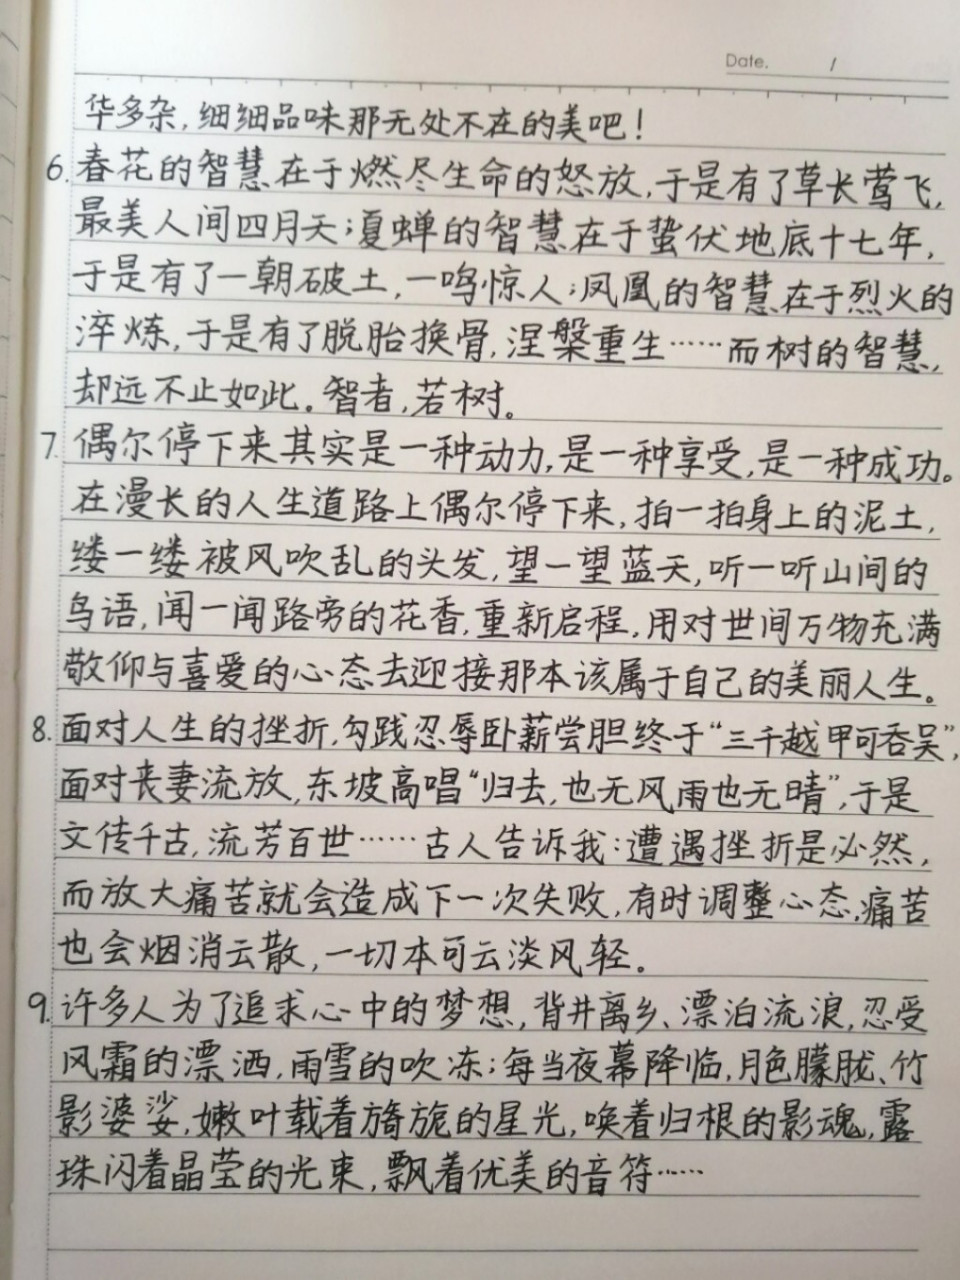 Date. /
华多杂,细细品味那无处不在的美吧!
6.春花的智慧在于燃尽生命的怒放,于是有了草长莺飞,
最美人间四月天;夏蝉的智慧在于蛰伏地底十七年,
于是有了一朝破土,一鸣惊人;凤凰的智慧在于烈火的
淬炼,于是有了脱胎换骨,涅槃重生……而树的智慧,
却远不止如此。智者,若树。
7.偶尔停下来其实是一种动力,是一种享受,是一种成功。
在漫长的人生道路上偶尔停下来,拍一拍身上的泥土,
缕一缕被风吹乱的头发,望一望蓝天,听一听山间的
鸟语,闻一闻路旁的花香,重新启程,用对世间万物充满
敬仰与喜爱的心态去迎接那本该属于自己的美丽人生。
8.面对人生的挫折,勾践忍辱卧薪尝胆终于“三千越甲可吞吴”,
面对丧妻流放,东坡高唱“归去,也无风雨也无晴”,于是
文传千古,流芳百世……古人告诉我:遭遇挫折是必然,
而放大痛苦就会造成下一次失败,有时调整心态,痛苦
也会烟消云散,一切本可云淡风轻。
9.许多人为了追求心中的梦想,背井离乡、漂泊流浪,忍受
风霜的漂洒,雨雪的吹冻;每当夜幕降临,月色朦胧、竹
影婆娑,嫩叶载着旖旎的星光,唤着归根的影魂,露
珠闪着晶莹的光束,飘着优美的音符……